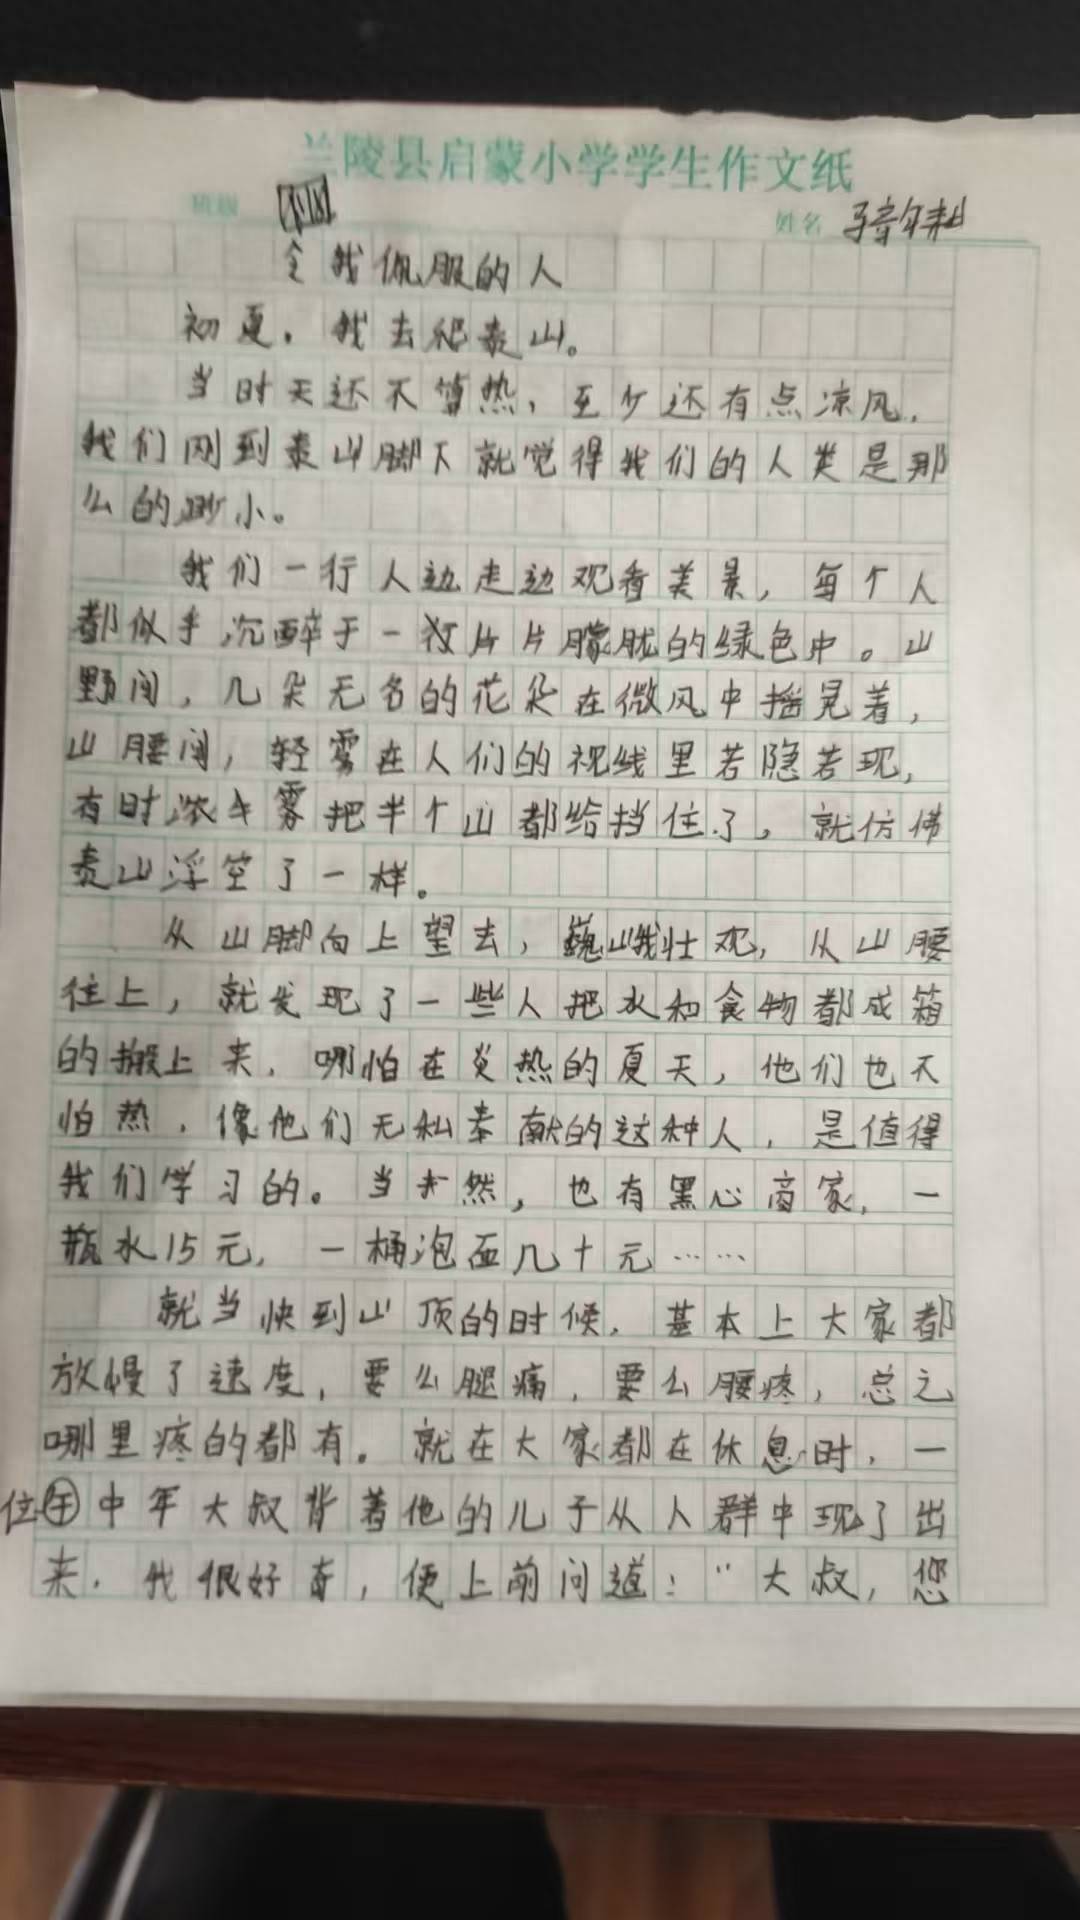 兰陵县启蒙小学学生作文纸
班级
姓名
令我佩服的人
初夏，我去爬泰山。
当时天还不算热，至少还有点凉风，
我们刚到泰山脚下就觉得我们的人类是那
么的渺小。
我们一行人边走边观看美景，每个人
都似乎沉醉于一片片朦胧的绿色中。山
野间，几朵无名的花朵在微风中摇晃着，
山腰间，轻雾在人们的视线里若隐若现，
有时浓雾把半个山都给挡住了，就仿佛
泰山浮空了一样。
从山脚向上望去，巍峨壮观，从山腰
往上，就发现了一些人把水和食物都成箱
的搬上来，哪怕在炎热的夏天，他们也不
怕热，像他们无私奉献的这种人，是值得
我们学习的。当然，也有黑心商家，一
瓶水15元，一桶泡面几十元……
就当快到山顶的时候，基本上大家都
放慢了速度，要么腿痛，要么腰疼，总之
哪里疼的都有。就在大家都在休息时，一
位中年大叔背着他的儿子从人群中现了出
来，我很好奇，便上前问道：“大叔，您